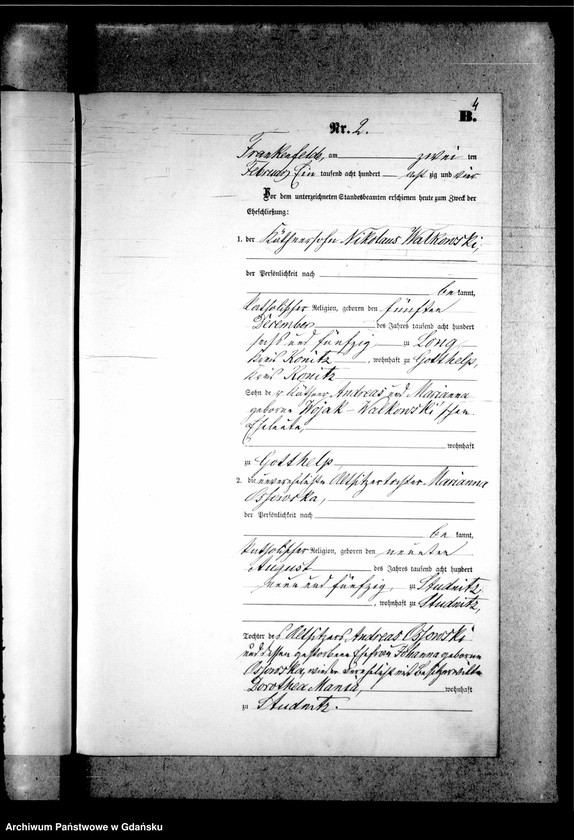 4
B.
Nr. 2.
Frankenfelde, am zwei ten
Februar Ein tausend acht hundert acht zig und vier
Vor dem unterzeichneten Standesbeamten erschienen heute zum Zweck der
Eheschließung:
1. der Käthnersohn Nikolaus Walkowski,
der Persönlichkeit nach
be kannt,
katholischer Religion, geboren den fünften
December des Jahres tausend acht hundert
sechs und fünfzig zu Long,
Kreis Konitz, wohnhaft zu Gotthelp,
Kreis Konitz
Sohn der Käthner Andreas und Marianna
geborne Wojak-Walkowski'schen
Eheleute,
wohnhaft
zu Gotthelp
2. die unverehelichte Altsitzertochter Marianna
Ossowska,
der Persönlichkeit nach
be kannt,
katholischer Religion, geboren den neunten
August des Jahres tausend acht hundert
neun und fünfzig, zu Studnitz,
, wohnhaft zu Studnitz,
Tochter des Altsitzers Andreas Ossowski
und dessen gestorbene Ehefrau Johanna geborne
Ossowska, wieder verehelicht mit
Dorothea wohnhaft
zu Studnitz.
Archiwum Państwowe w Gdańsku